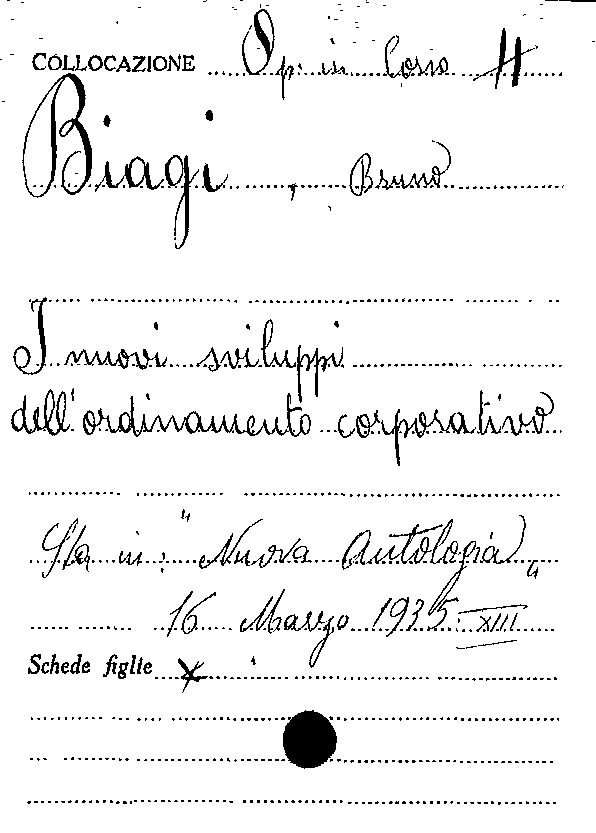 COLLOCAZIONE Op. in Corso H
Biagi, Bruno
I nuovi sviluppi
dell'ordinamento corporativo
Sta in: "Nuova Antologia"
16 Marzo 1935. XIII
Schede figlie x